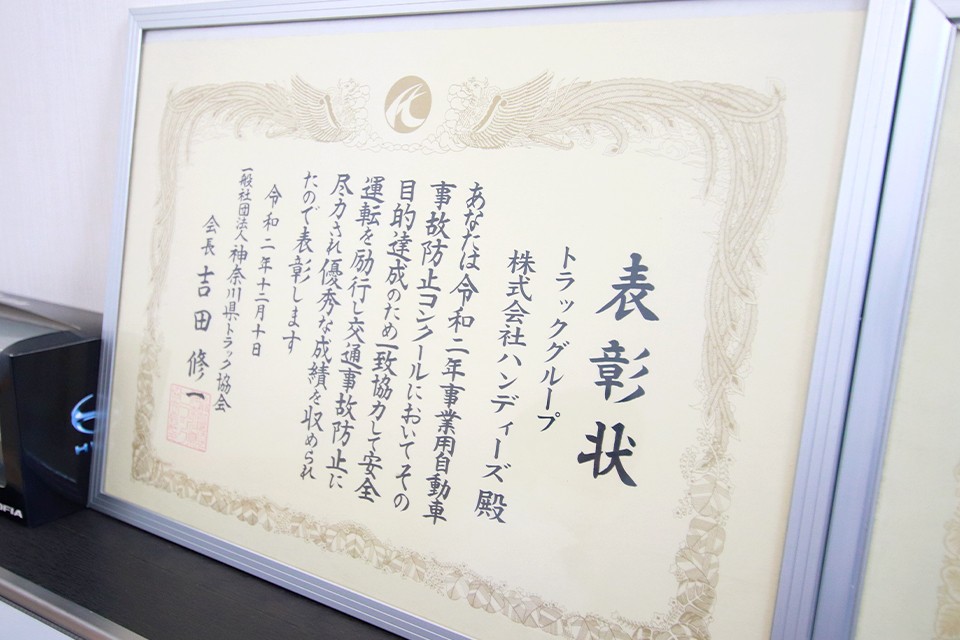 表彰状
トラックグループ
株式会社ハンディーズ 殿
あなたは令和二年事業用自動車
事故防止コンクールにおいてその
目的達成のため一致協力して安全
運転を励行し交通事故防止に
尽力され優秀な成績を収められ
たので表彰します
令和二年十二月十日
一般社団法人神奈川県トラック協会
会長 吉田修一